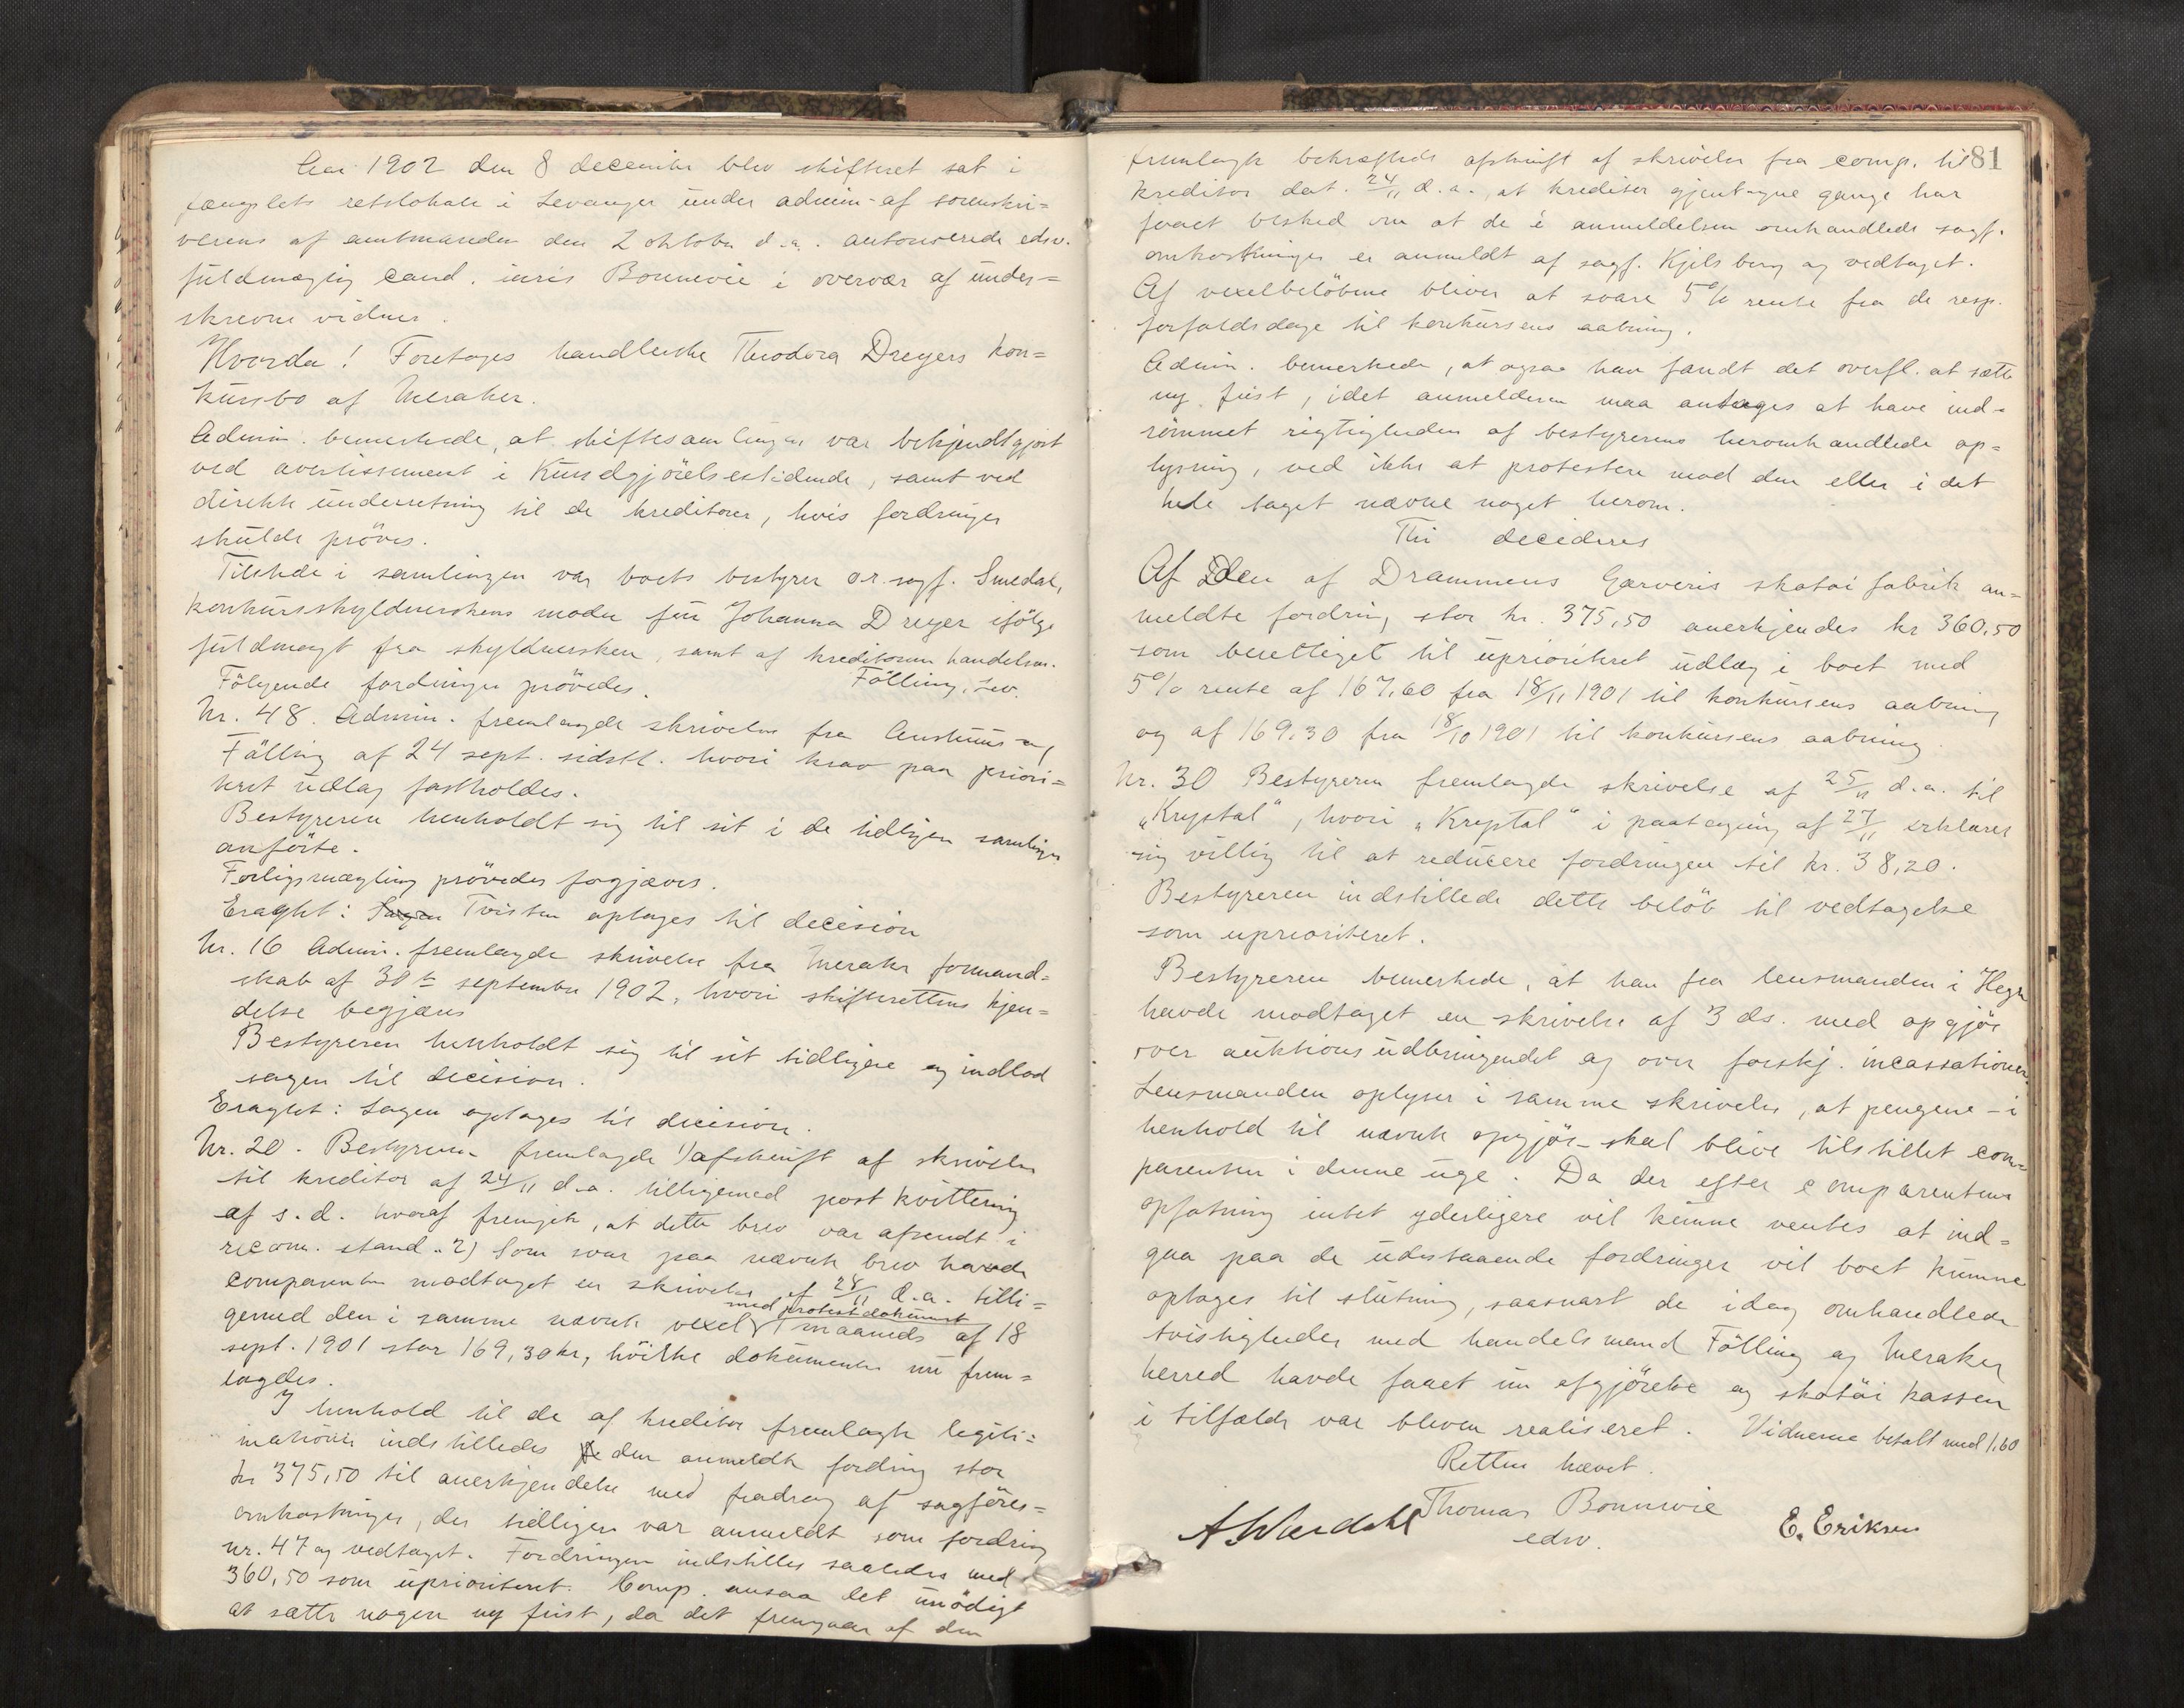 Aar 1902 den 8 december blev skifteret sat i
fængslets retslokale i Levanger under admin. af sorenskri=
verens af amtmanden den 2 oktober d.a. autoriserede edsv.
fuldmægtig cand. iuris Bonnevie i overvær af under=
skrevne vidner.
Hvorda! Foretoges handlerske Theodora Dreyers kon=
kursbo af Meraker.
Admin. bemerkede, at skiftesamlingen var bekjendtgjort
ved avertissement i Kundgjörelsestidende, samt ved
direkte underretning til de kreditorer, hvis fordringer
skulde pröves.
Tilstede i samlingen var boets bestyrer o.r. sagf. Smedal,
konkursskyldnerskens moder fru Johanna Dreyer ifölge
fuldmagt fra skyldnersken, samt af kreditorerne handelsm.
Fölling, Lev.
Fölgende fordringer prövedes.
Nr. 48. Admin. fremlagde skrivelse fra Aushuus og
Fölling af 24 sept. sidstl. hvori krav paa priori=
teret udlæg fastholdes.
Bestyreren henholdt sig til sit i de tidligere samlinger
anförte.
Forligsmægling prövedes forgjæves.
Eragtet: Sagen Tvisten optages til decision
Nr. 16 Admin. fremlagde skrivelse fra Meraker formand=
skab af 30te september 1902, hvori skifterettens kjen=
delse begjæres
Bestyreren henholdt sig til sit tidligere og indlod
sagen til decision.
Eragtet: Sagen optages til decision.
Nr. 20. Bestyreren fremlagde 1) afskrift af skrivelse
til kreditor af 24/11 d.a. tilligemed postkvittering
af s.d. hvoraf fremgik, at dette brev var afsendt i
recom. stand.. 2) Som svar paa nævnte brev havde
comparenten modtaget en skrivelse af 28/11 d.a. tilli=
med protestdokument
gemed den i samme nævnte vexel 1 maaneds af 18
sept. 1901 stor 169,30 kr, hvilke dokumenter nu frem=
lagdes.
I henhold til de af kreditor fremlagte legiti=
mationer indstilledes den anmeldte fordring stor
kr 375,50 til anerkjendelse med fradrag af sagförer=
omkostninger, der tidligere var anmeldt som fordring
nr. 47 og vedtaget. Fordringen indstilles saaledes med
360,50 som uprioriteret. Comp. ansaa det unödigt
at sætte nogen ny frist, da det fremgaar af den
81
fremlagte bekræftede afskrift af skrivelse fra comp. til
kreditor dat. 24/11 d.a., at kreditor gjentagne gange har
faaet besked om at de i anmeldelsen omhandlede sagf.
omkostninger er anmeldt af sagf. Kjelsberg og vedtaget.
Af vexelbelöbene bliver at svare 5% rente fra de resp.
forfaldsdage til konkursens aabning.
Admin. bemerkede, at ogsaa han fandt det overfl. at sætte
ny frist, idet anmelderen maa antages at have ind=
römmet rigtigheden af bestyrerens heromhandlede op=
lysning, ved ikke at protestere mod den eller i det
hele taget nævne noget herom.
Thi decideres
Af Den af Drammens Garveris skotöifabrik an=
meldte fordring stor kr. 375,50 anerkjendes kr 360,50
som berettiget til uprioriteret udlæg i boet med
5% rente af 167,60 fra 18/11 1901 til konkursens aabning
og af 169,30 fra 18/10 1901 til konkursens aabning.
Nr. 30 Bestyreren fremlagde skrivelse af 25/11 d.a. til
„Krystal“, hvori „Krystal“ i paategning af 27/11 erklærer
sig villig til at reducere fordringen til kr. 38,20.
Bestyreren indstillede dette belöb til vedtagelse
som uprioriteret.
Bestyreren bemerkede, at han fra lensmanden i Hegra
havde modtaget en skrivelse af 3 ds. med opgjör
over auktionsudbringendet og over forskj. incassationer.
Lensmanden oplyser i samme skrivelse, at pengene – i
henhold til nævnte opgjör – skal blive tilstillet com=
parenten i denne uge. Da der efter comparentens
opfatning intet yderligere vil kunne ventes at ind=
gaa paa de udestaaende fordringer vil boet kunne
optages til slutning, saasnart de idag omhandlede
tvistigheder med handelsmand Fölling og Meraker
herred havde faaet sin afgjörelse og skotöi kassen
i tilfælde var bleven realiseret. Vidnerne betalt med 1,60
Retten hævet.
Thomas Bonnevie
edsv.
A Wardahl
E. Eriksen